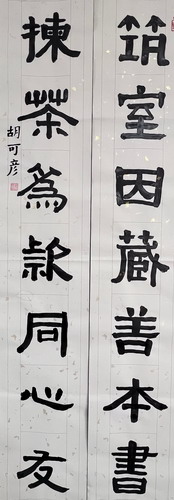 筑室因藏善本書
揀茶為款同心友
胡可彦